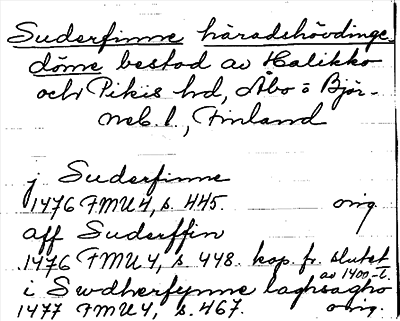 Suderfinne häradshövdinge-
döme bestod av Halikko
och Pikis hd, Åbo o Björ-
neb. l., Finland
j Suderfinne
1476 FMU 4, s. 445. orig.
aff Suderffin
1476 FMU 4, s. 448. kop. fr. slutet
av 1400-t.
i Swdherfynne laghsagho
1477 FMU 4, s. 467. orig.